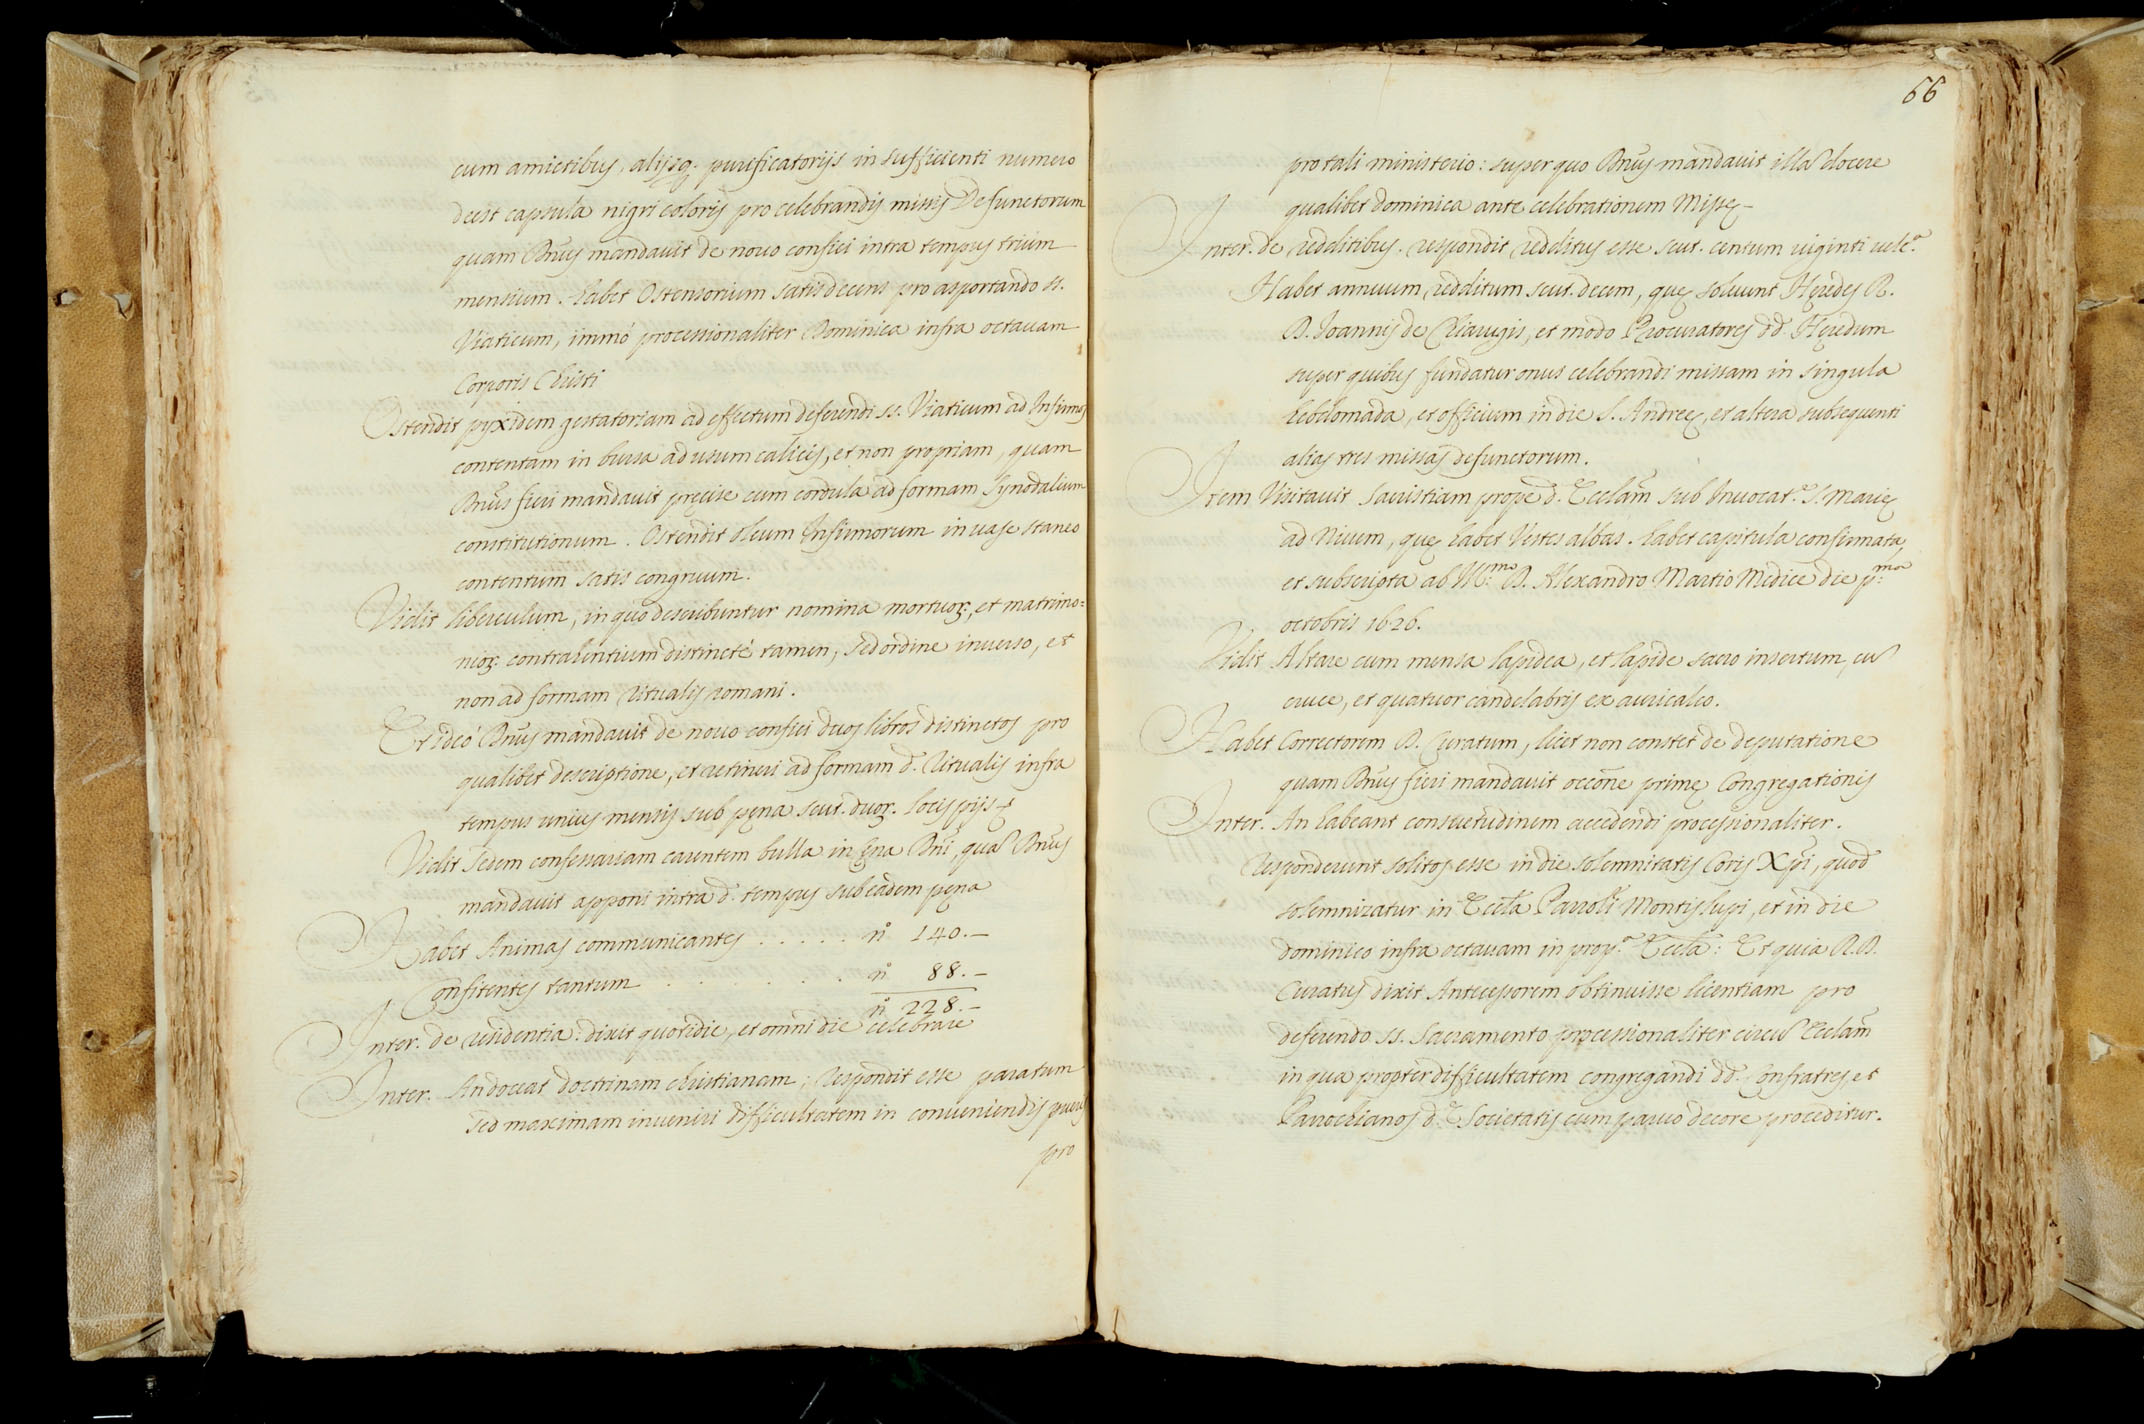 cum amictibus, alijsq. purificatorijs in sufficienti numero
deest capsula nigri coloris pro celebrandis missis Defunctorum
quam Dnus mandavit de novo confici intra tempus trium
mensium. habet Ostensorium satis decens pro asportando ss.
Viaticum, immò processionaliter Dominica infra octavam
Corporis Christi
Ostendit pyxidem gestatoriam ad effectum deferendi ss. Viaticum ad Infirmos
contentam in bursa ad usum calicis, et non propriam, quam
Dnus fieri mandavit pręcise cum cordula ad formam Synodalium
constitutionum. Ostendit oleum Infirmorum in vase staneo
contentum satis congruum.
Vidit liberculum, in quo describuntur nomina mortuoꝝ, et matrimo=
nioꝝ contrahentium distinctè tamen, sed ordine inverso, et
non ad formam Ritualis romani.
Et ideò Dnus mandavit de novo confici duos libros distinctos pro
qualibet descriptione, et retineri ad formam d. Ritualis infra
tempus unius mensis sub pęna scut. duoꝝ. locis pijs
Vidit Sedem confessariam carentem bulla in Dni, qua Dnus
mandavit apponi intra d. tempus sub eadem pęna
Habet Animas communicantes . . . . . n° 140.-
Confitentes tantum . . . . . . . n° 88.-
n° 228.-
Inter. de residentia: dixit quotidie, et omni die celebrare
Inter. An doceat doctrinam christianam; Respondit esse paratum
sed maximam inveniri difficultatem in conveniendis pueris
pro
66
pro tali ministerio: super quo Dnus mandavit illã docere
qualibet dominica ante celebrationem Missę-
Inter. de redditibus. respondit redditus esse scut. centum viginti
Habet annuum redditum scut. decem, quę solvunt Hęredes R.
D. Joannis de Chiarugis, et modo Procuratores dd. Hęredum
super quibus fundatur onus celebrandi missam in singula
hebdomada, et officium in die S. Andreę, et altera subsequenti
alias tres missas defunctorum.
Item Visitavit Sacristiam prope d. Ecclam sub Invocat.e S. Marię
ad Nivem, quę habet Vestes albas. habet capitula confirmata,
et subscripta ab Ill.mo D. Alexandro Martio Medice die p.ma
octobris 1626.
Vidit Altare cum mensa lapidea, et lapide sacro insertum, cũ
cruce, et quatuor candelabris ex auricalco.
Habet Correctorem D. Curatum, licet non constet de deputatione
quam Dnus fieri mandavit occone primę Congregationis
Inter. An habeant consuetudinem accedendi processionaliter.
Responderunt solitos esse in die solemnitatis Coris Xpi, quod
solemnizatur in Eccla Parroli Montislupi, et in die
dominico infra octavam in prop.a Eccla: Et quia R.D.
Curatus dixit Antecessorem obtinuisse licentiam pro
deferendo ss. Sacramento processionaliter circũ Ecclam
in qua propter difficultatem congregandi dd. Confratres, et
Parrochianos d.e Societatis cum parvo decore proceditur.